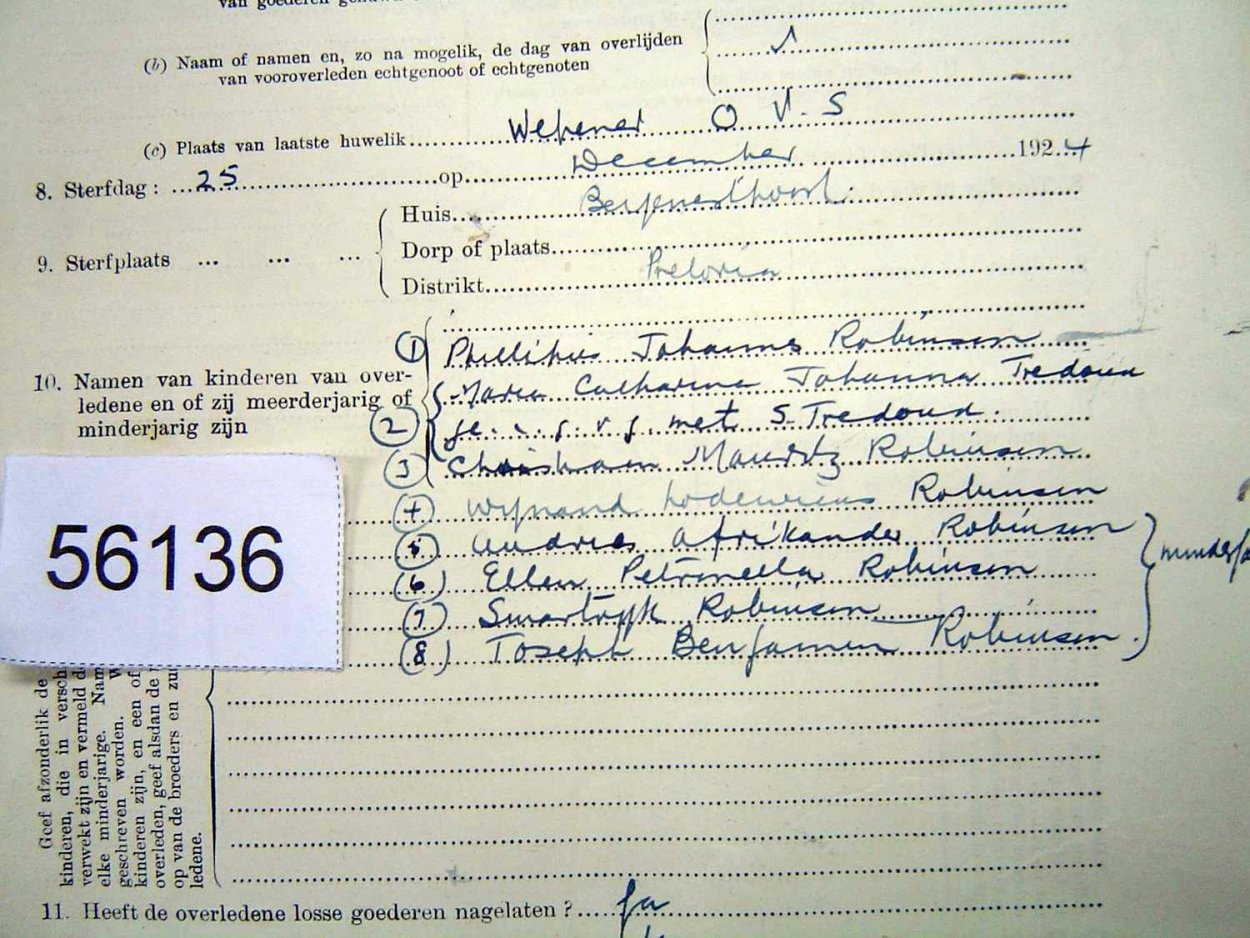 (b) Naam of namen en, zo na mogelik, de dag van overlijden
van vooroverleden echtgenoot of echtgenoten
(c) Plaats van laatste huwelik Wepener O V. S
8. Sterfdag : 25 op December 1924
9. Sterfplaats
Huis
Dorp of plaats
Distrikt Pretoria
(1) Phillipus Johannes Robinson
10. Namen van kinderen van over-
ledene en of zij meerderjarig of
minderjarig zijn
Maria Catharina Johanna Tredoux
(2) met S. Tredoux.
(3) Christiaan Mauritz Robinson
(4) Wijnand Lodewicus Robinson
(5) Andries Afrikander Robinson
(6) Ellen Petronella Robinson
(7) Swartryk Robinson
(8) Joseph Benjamin Robinson.
56136
Geef afzonderlik de
kinderen, die in versch
verwekt zijn en vermeld d
elke minderjarige. Nam
geschreven worden. W
kinderen zijn, en een of
overleden, geef alsdan de
op van de broeders en zu
ledene.
11. Heeft de overledene losse goederen nagelaten ? Ja